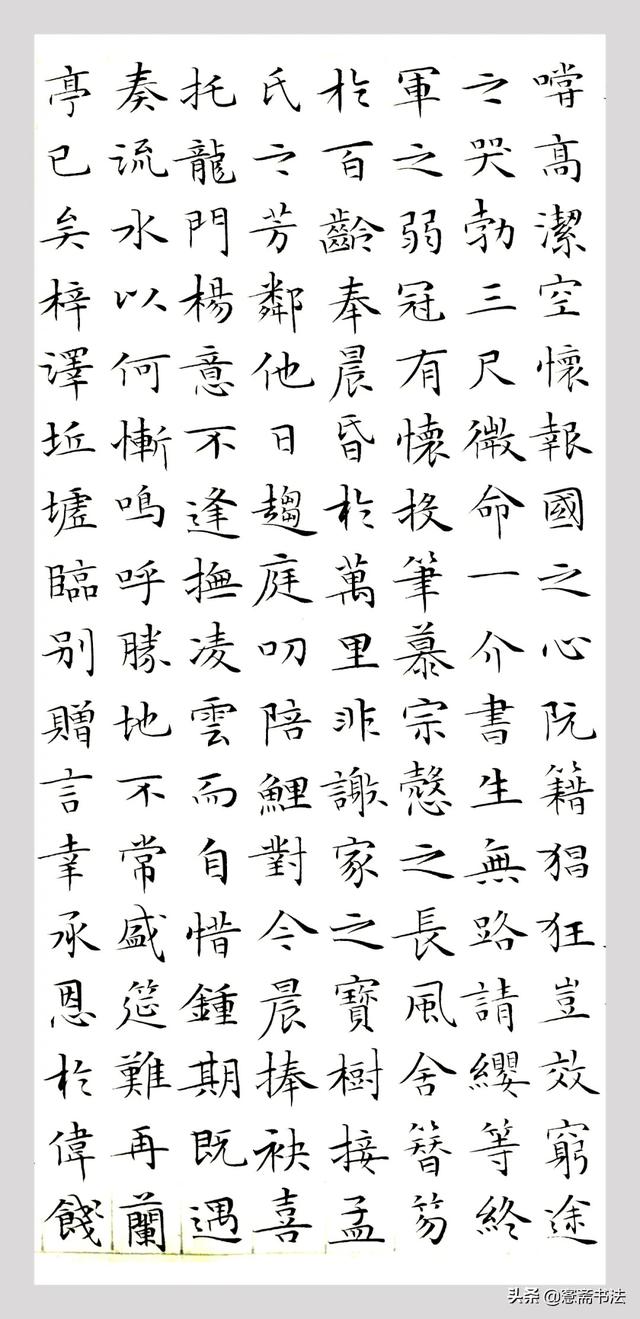 嘗高潔空懷報國之心阮籍猖狂豈效窮途
之哭勃三尺微命一介書生無路請纓等終
軍之弱冠有懷投筆慕宗愨之長風舍簪笏
於百齡奉晨昏於萬里非謝家之寶樹接孟
氏之芳鄰他日趨庭叨陪鯉對今晨捧袂喜
托龍門楊意不逢撫凌雲而自惜鍾期既遇
奏流水以何慚嗚呼勝地不常盛筵難再蘭
亭已矣梓澤坵墟臨别贈言幸承恩於偉餞
头条 @窓斋书法